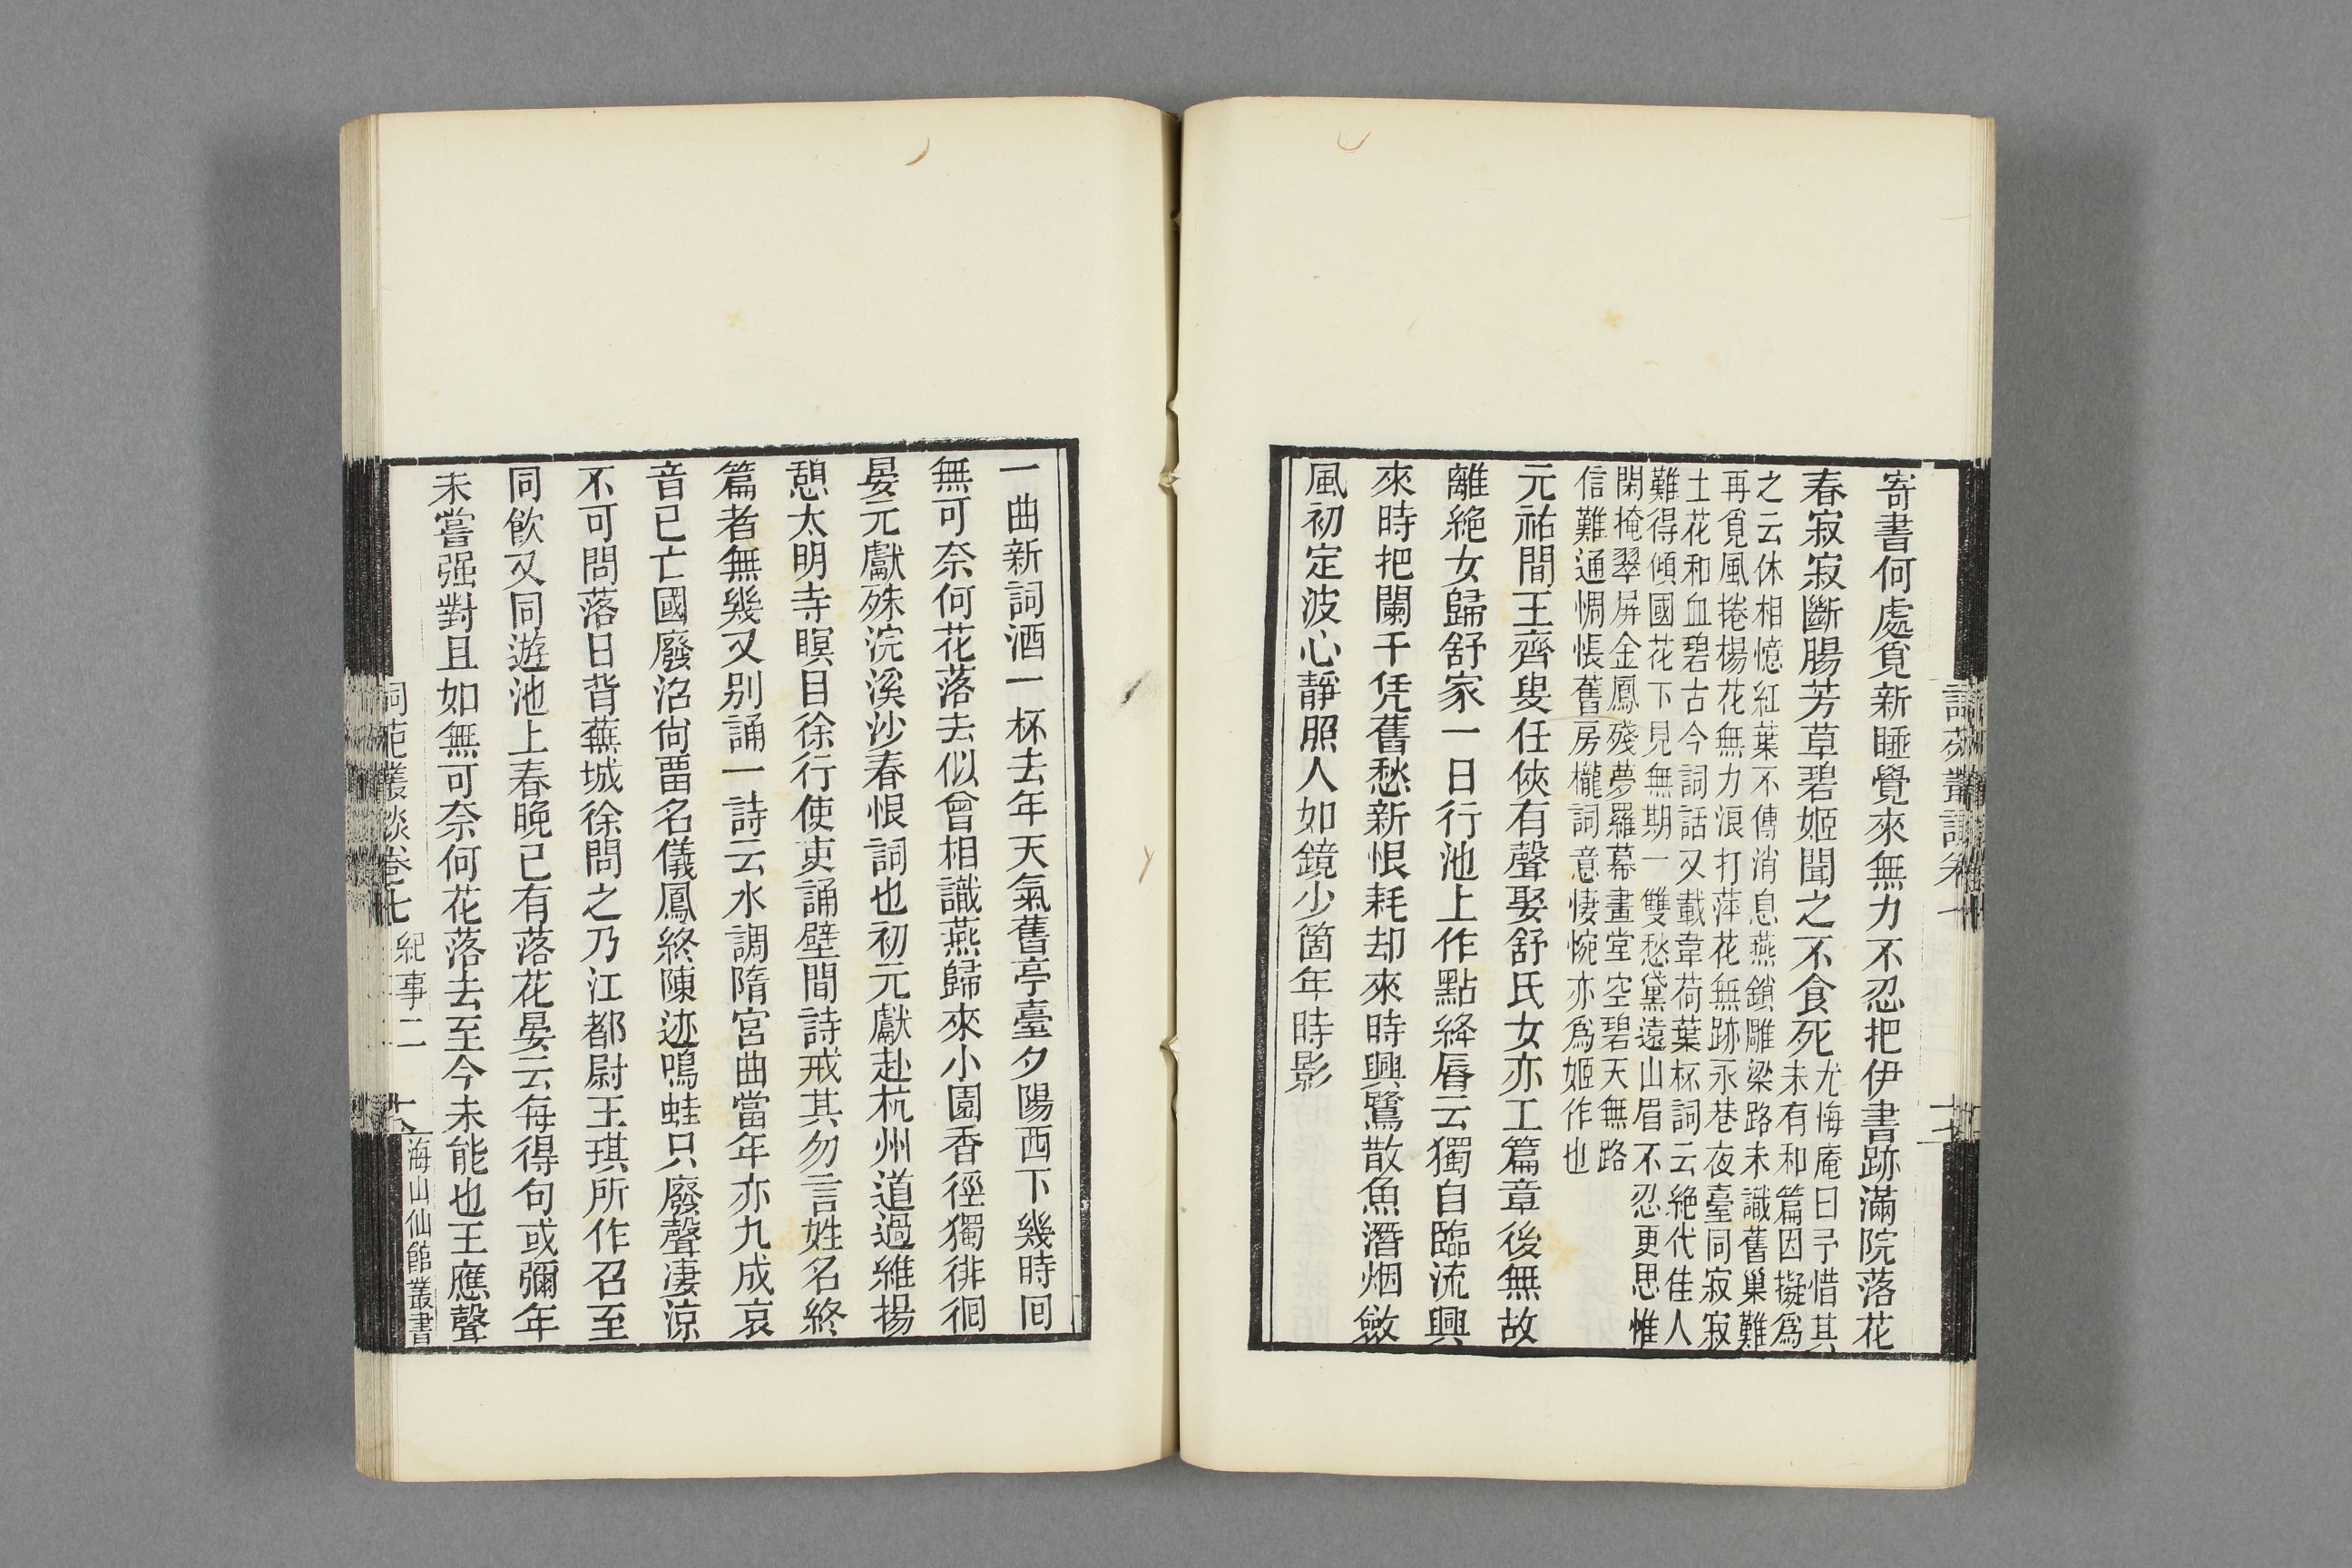 寄書何處覓新睡覺來無力不忍把伊書跡滿院落花
春寂寂斷腸芳草碧姬聞之不食死
尤悔庵曰予惜其
未有和篇因擬爲
之云休相憶紅葉不傳消息燕鎖雕梁路未識舊巢難
再覓風捲楊花無力浪打萍花無跡永巷夜臺同寂寂
土花和血碧古今詞話又載韋荷葉杯詞云絕代佳人
難得傾國花下見無期一雙愁黛遠山眉不忍更思惟
閑掩翠屏金鳳殘夢羅幕畫堂空碧天無路
信難通惆悵舊房櫳詞意悽惋亦爲姬作也
元祐間王齊叟任俠有聲娶舒氏女亦工篇章後無故
離絕女歸舒家一日行池上作點絳唇云獨自臨流興
來時把闌干凭舊愁新恨耗却來時興鷺散魚潛烟斂
風初定波心靜照人如鏡少箇年時影
一曲新詞酒一杯去年天氣舊亭臺夕陽西下幾時回
無可奈何花落去似曾相識燕歸來小園香徑獨徘徊
晏元獻殊浣溪沙春恨詞也初元獻赴杭州道過維揚
憩太明寺瞑目徐行使吏誦壁間詩戒其勿言姓名終
篇者無幾又別誦一詩云水調隋宮曲當年亦九成哀
音已亡國廢沼尙畱名儀鳳終陳迹鳴蛙只廢聲凄涼
不可問落日背蕪城徐問之乃江都尉王琪所作召至
同飮又同遊池上春晚已有落花晏云每得句或彌年
未嘗强對且如無可奈何花落去至今未能也王應聲
詞苑叢談卷七 紀事二
海山仙館叢書